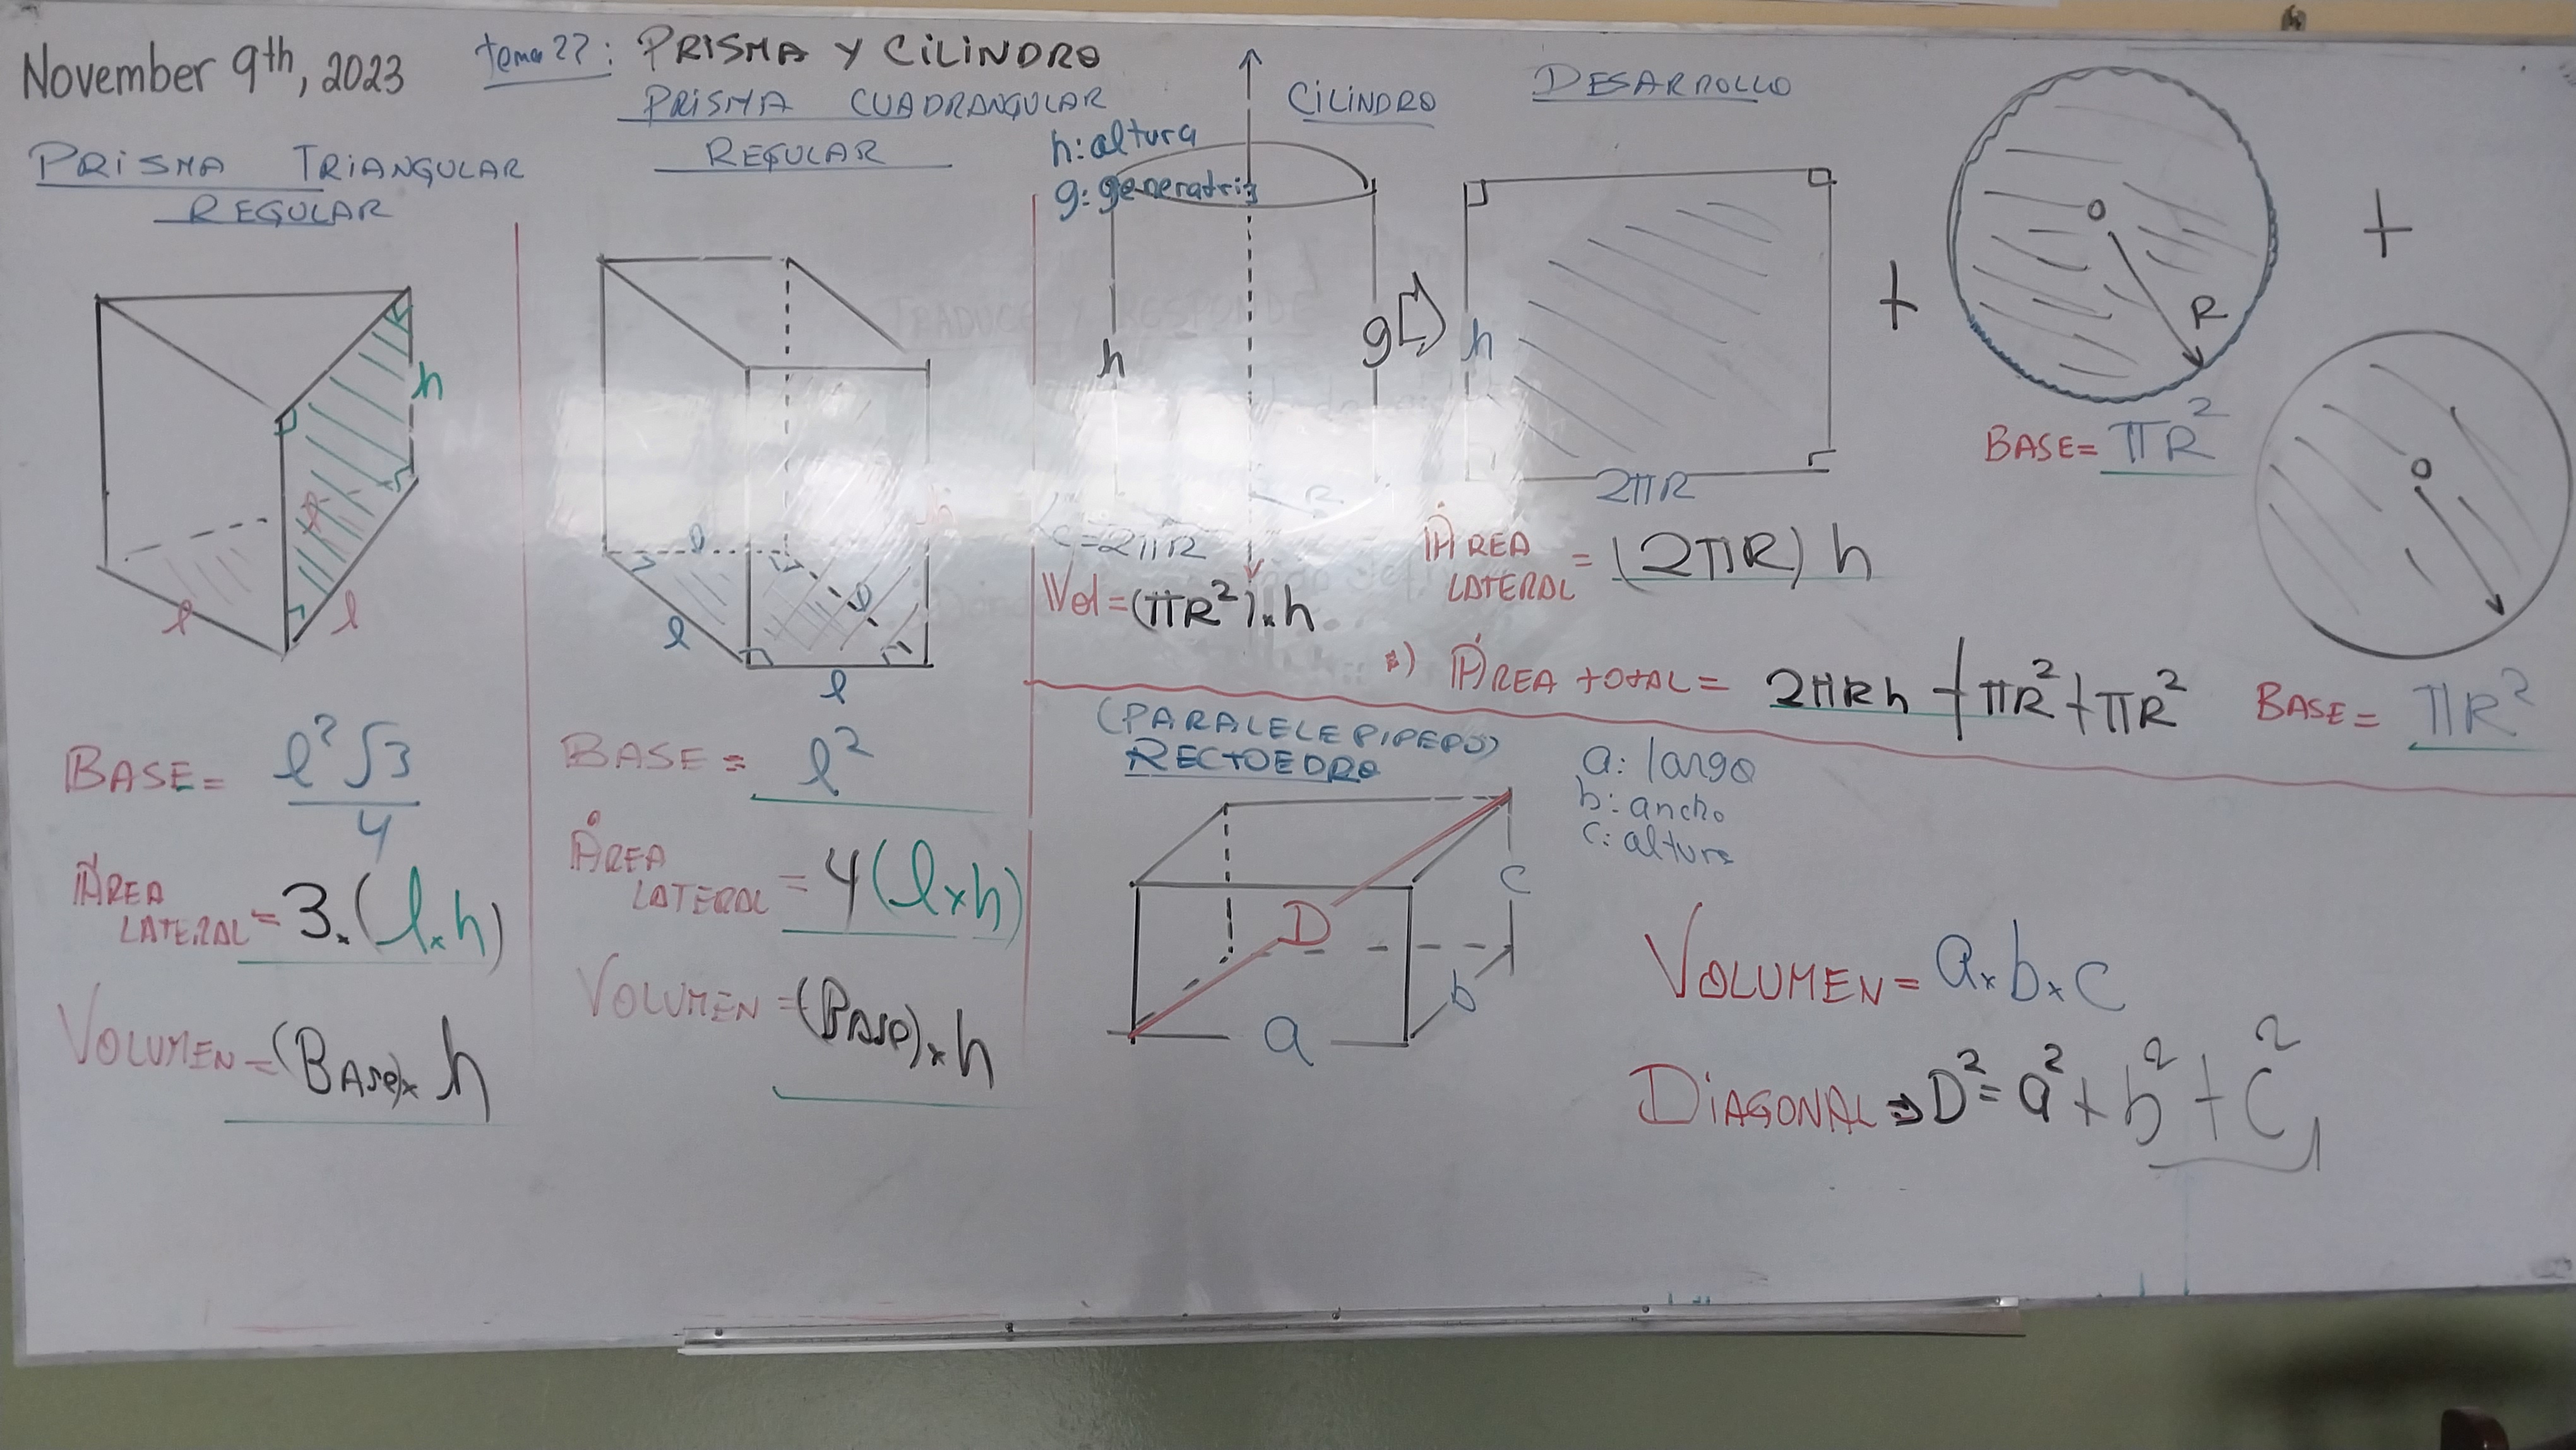 November 9th, 2023
tema 22: PRISMA Y CILINDRO
PRISMA TRIANGULAR
REGULAR
h
l
l
l
BASE = l²√3
4
ÁREA
LATERAL = 3 × (l × h)
VOLUMEN = (BASE) × h
PRISMA CUADRANGULAR
REGULAR
h
l
l
l
l
BASE = l²
ÁREA
LATERAL = 4(l × h)
VOLUMEN = (BASE) × h
CILINDRO
h: altura
g: generatriz
h
g
R
C = 2πR
Vol = (πR²) × h
DESARROLLO
h
2πR
+
O
R
BASE = πR²
+
O
BASE = πR²
ÁREA
LATERAL = (2πR) h
ÁREA total = 2πRh + πR² + πR²
(PARALELEPIPEDO)
RECTOEDRO
a: largo
b: ancho
c: altura
D
a
b
c
VOLUMEN = a × b × c
DIAGONAL ⇒ D² = a² + b² + c²